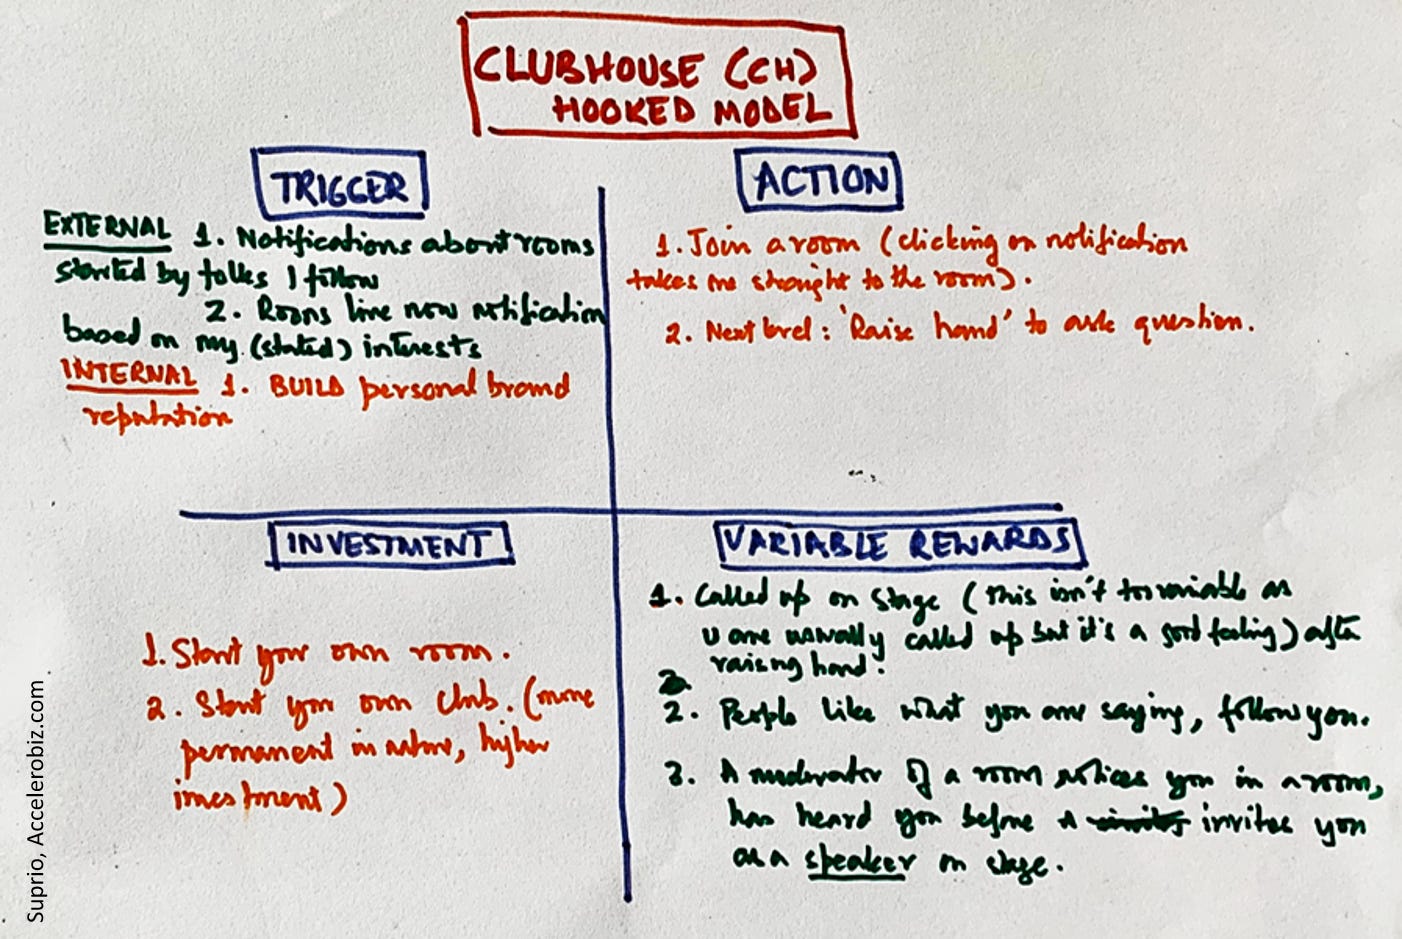 CLUBHOUSE (CH)
HOOKED MODEL
TRIGGER
EXTERNAL 1. Notifications about rooms
started by folks I follow
2. Rooms live now notification
based on my (stated) interests
INTERNAL 1. BUILD personal brand
reputation
ACTION
1. Join a room (clicking on notification
takes me straight to the room).
2. Next level: 'Raise hand' to ask question.
INVESTMENT
1. Start your own room.
2. Start your own club. (more
permanent in nature, higher
investment)
VARIABLE REWARDS
1. Called up on stage (this isn't too variable as
u are usually called up but it's a good feeling) after
raising hand.
2. People like what you are saying, follow you.
3. A moderator of a room notices you in a room,
has heard you before & invites you
as a speaker on stage.
Suprio, Accelerobiz.com